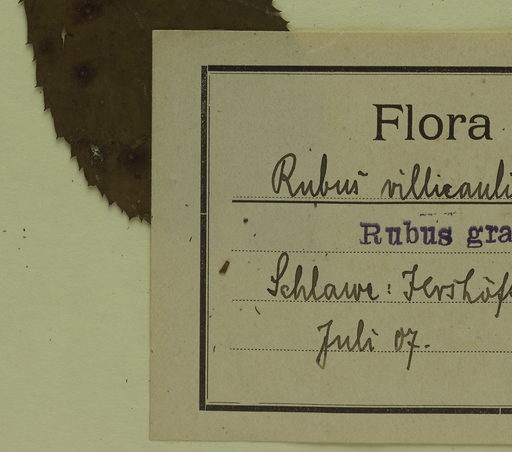 Flora
Rubus villicauli
Rubus gra
Schlawe: Jershöf
Juli 07.